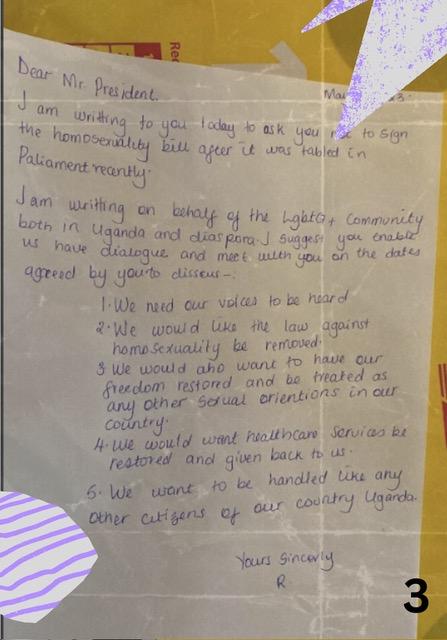 Rec
Dear Mr. President.
Ma 3.
I am writting to you today to ask you to sign
the homosexuality bill after it was tabled in
Paliament recently.
I am writting on behalf of the LgbtQ+ Community
both in Uganda and diaspora. I suggest you enable
us have dialogue and meet with you on the dates
agreed by you to disscus-:
1. We need our voices to be heard
2. We would like the law against
homosexuality be removed.
3 We would also want to have our
freedom restored and be treated as
any other sexual orientions in our
country.
4. We would want healthcare services be
restored and given back to us.
5. We want to be handled like any
other citizens of our country Uganda.
Yours Sincerly
R
3